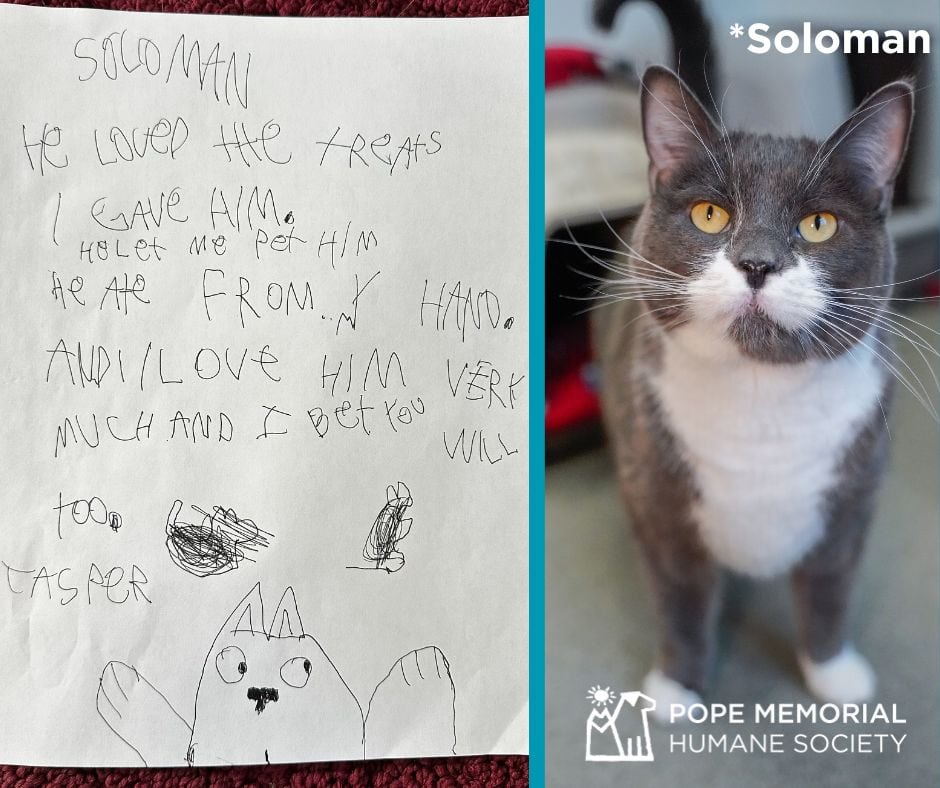 SOLOMAN
HE LOVED tHE tREAtS
I GAVE HIM.
HE LEt ME PEt HIM
HE AtE FROM MY HAND.
AND I LOVE HIM VERY
MUCH AND I BEt YOU
WILL
tOO.
CASPER
*Soloman
POPE MEMORIAL
HUMANE SOCIETY